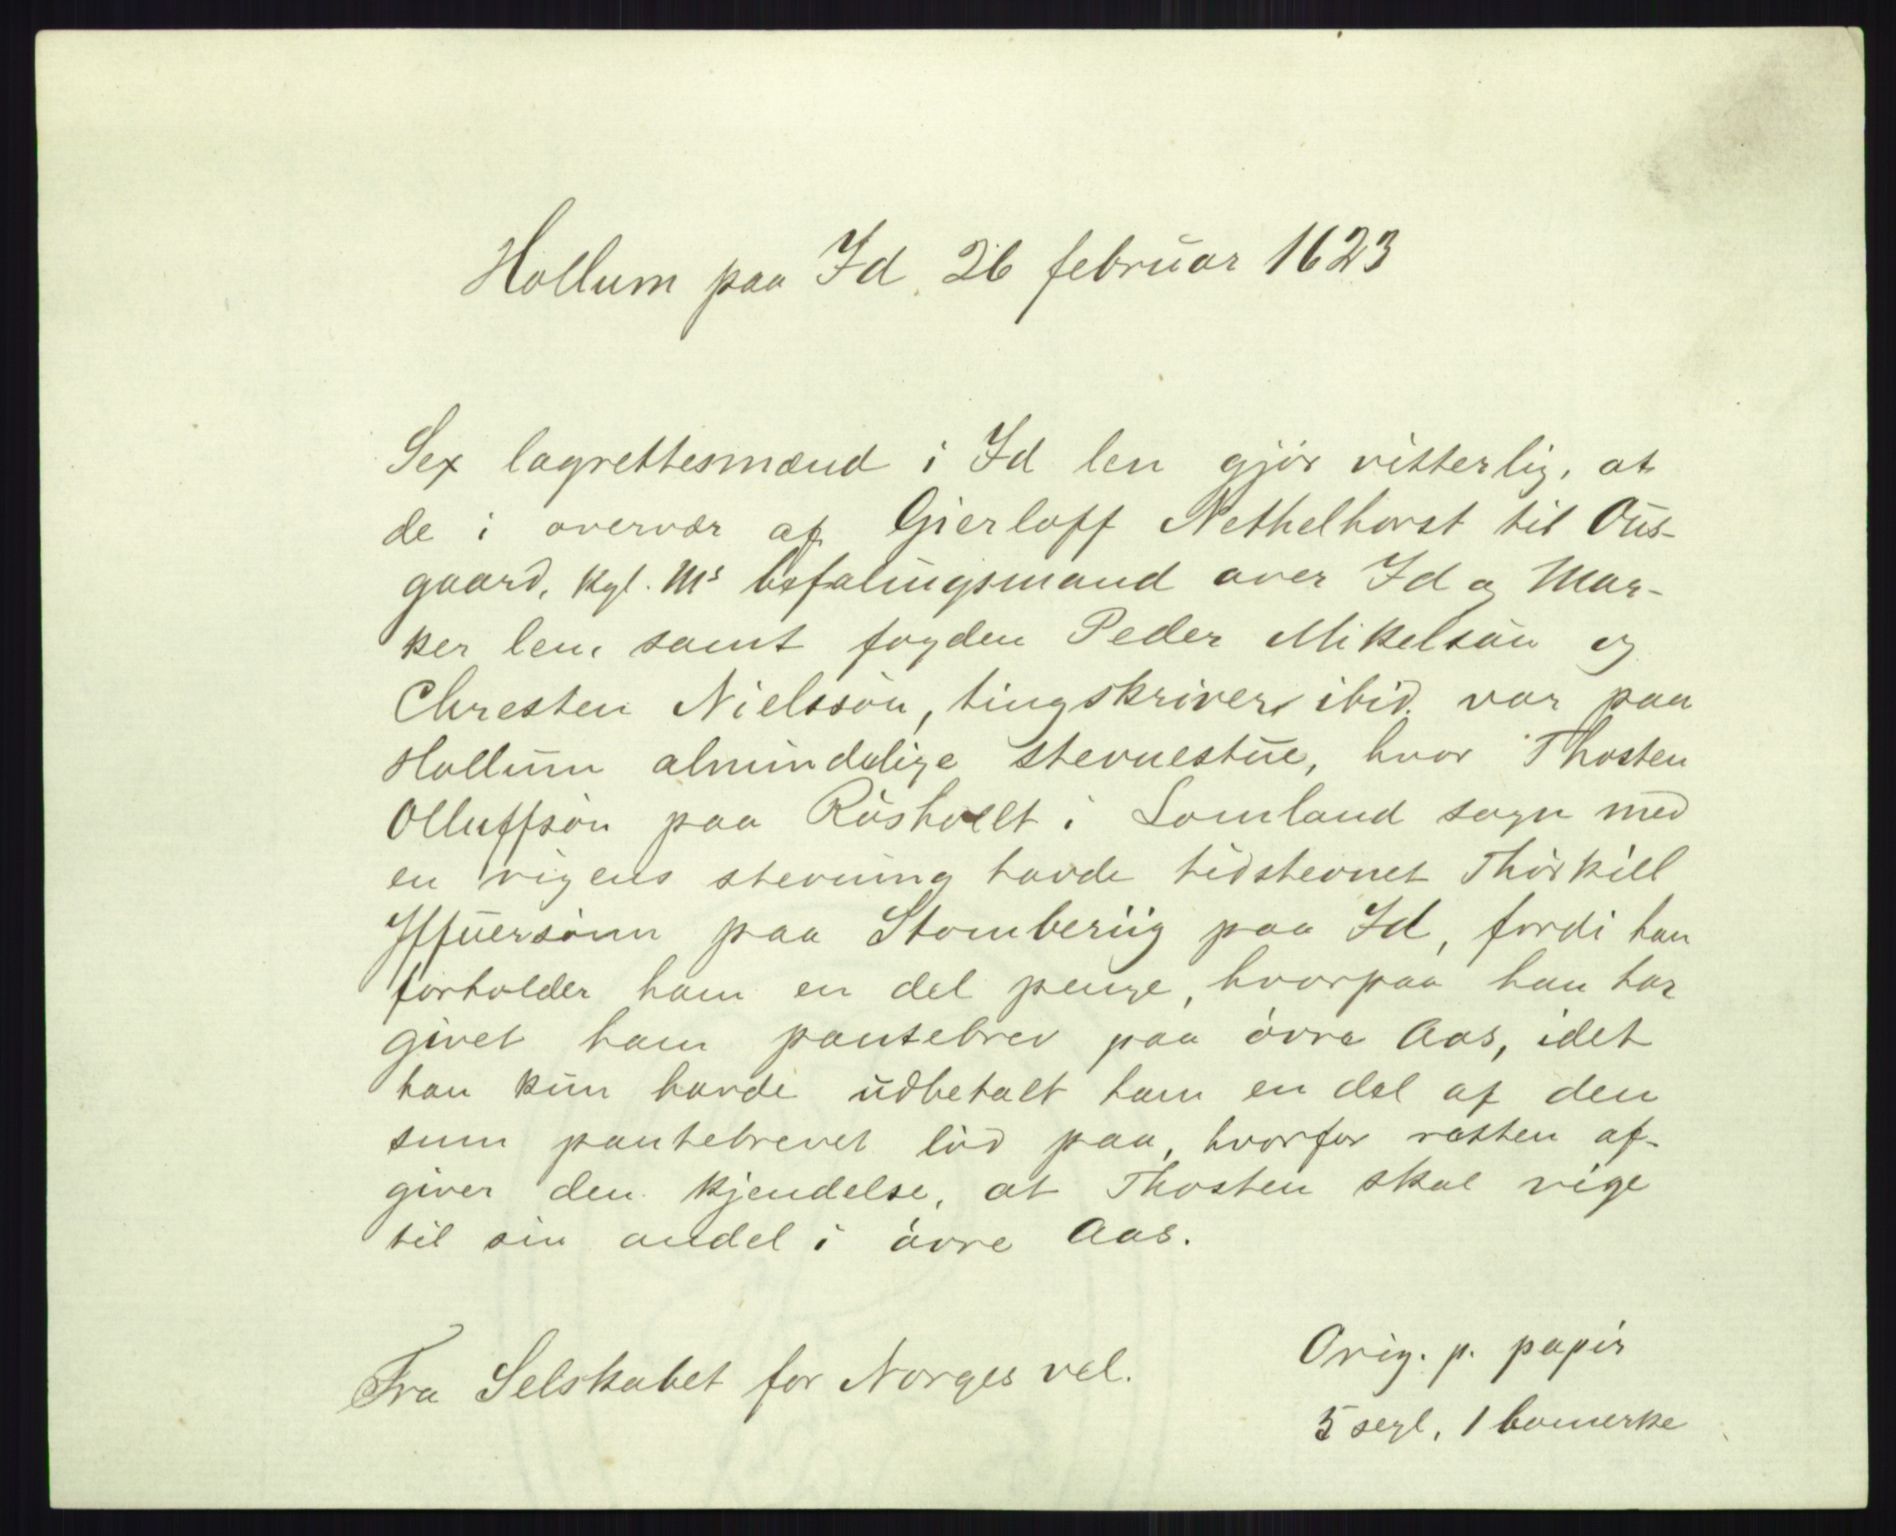 Hollum paa Id 26 februar 1623
Sex lagrettesmænd i Id len gjör vitterlig, at
de i overvær af Gierloff Nethelhorst til Ous-
gaard, kgl. Ms befalingsmand over Id og Mar-
ker len, samt fogden Peder Mikelsön og
Chresten Nielssön, tingskriver ibid. var paa
Hollum almindelige stevnestue, hvor Thosten
Olluffsön paa Rösholt i Lomland sogn med
en rigens stevning havde hidstevnet Thörkill
Iffuersönn paa Stomberiig paa Id, fordi han
forholder ham en del penge, hvorpaa han har
givet ham pantebrev paa övre Aas, idet
han kun havde udbetalt ham en del af den
sum pantebrevet löd paa, hvorfor retten af-
giver den kjendelse, at Thosten skal vige
til sin andel i övre Aas.
Fra Selskabet for Norges vel.
Orig. p. papir
5 segl, 1 bomerke